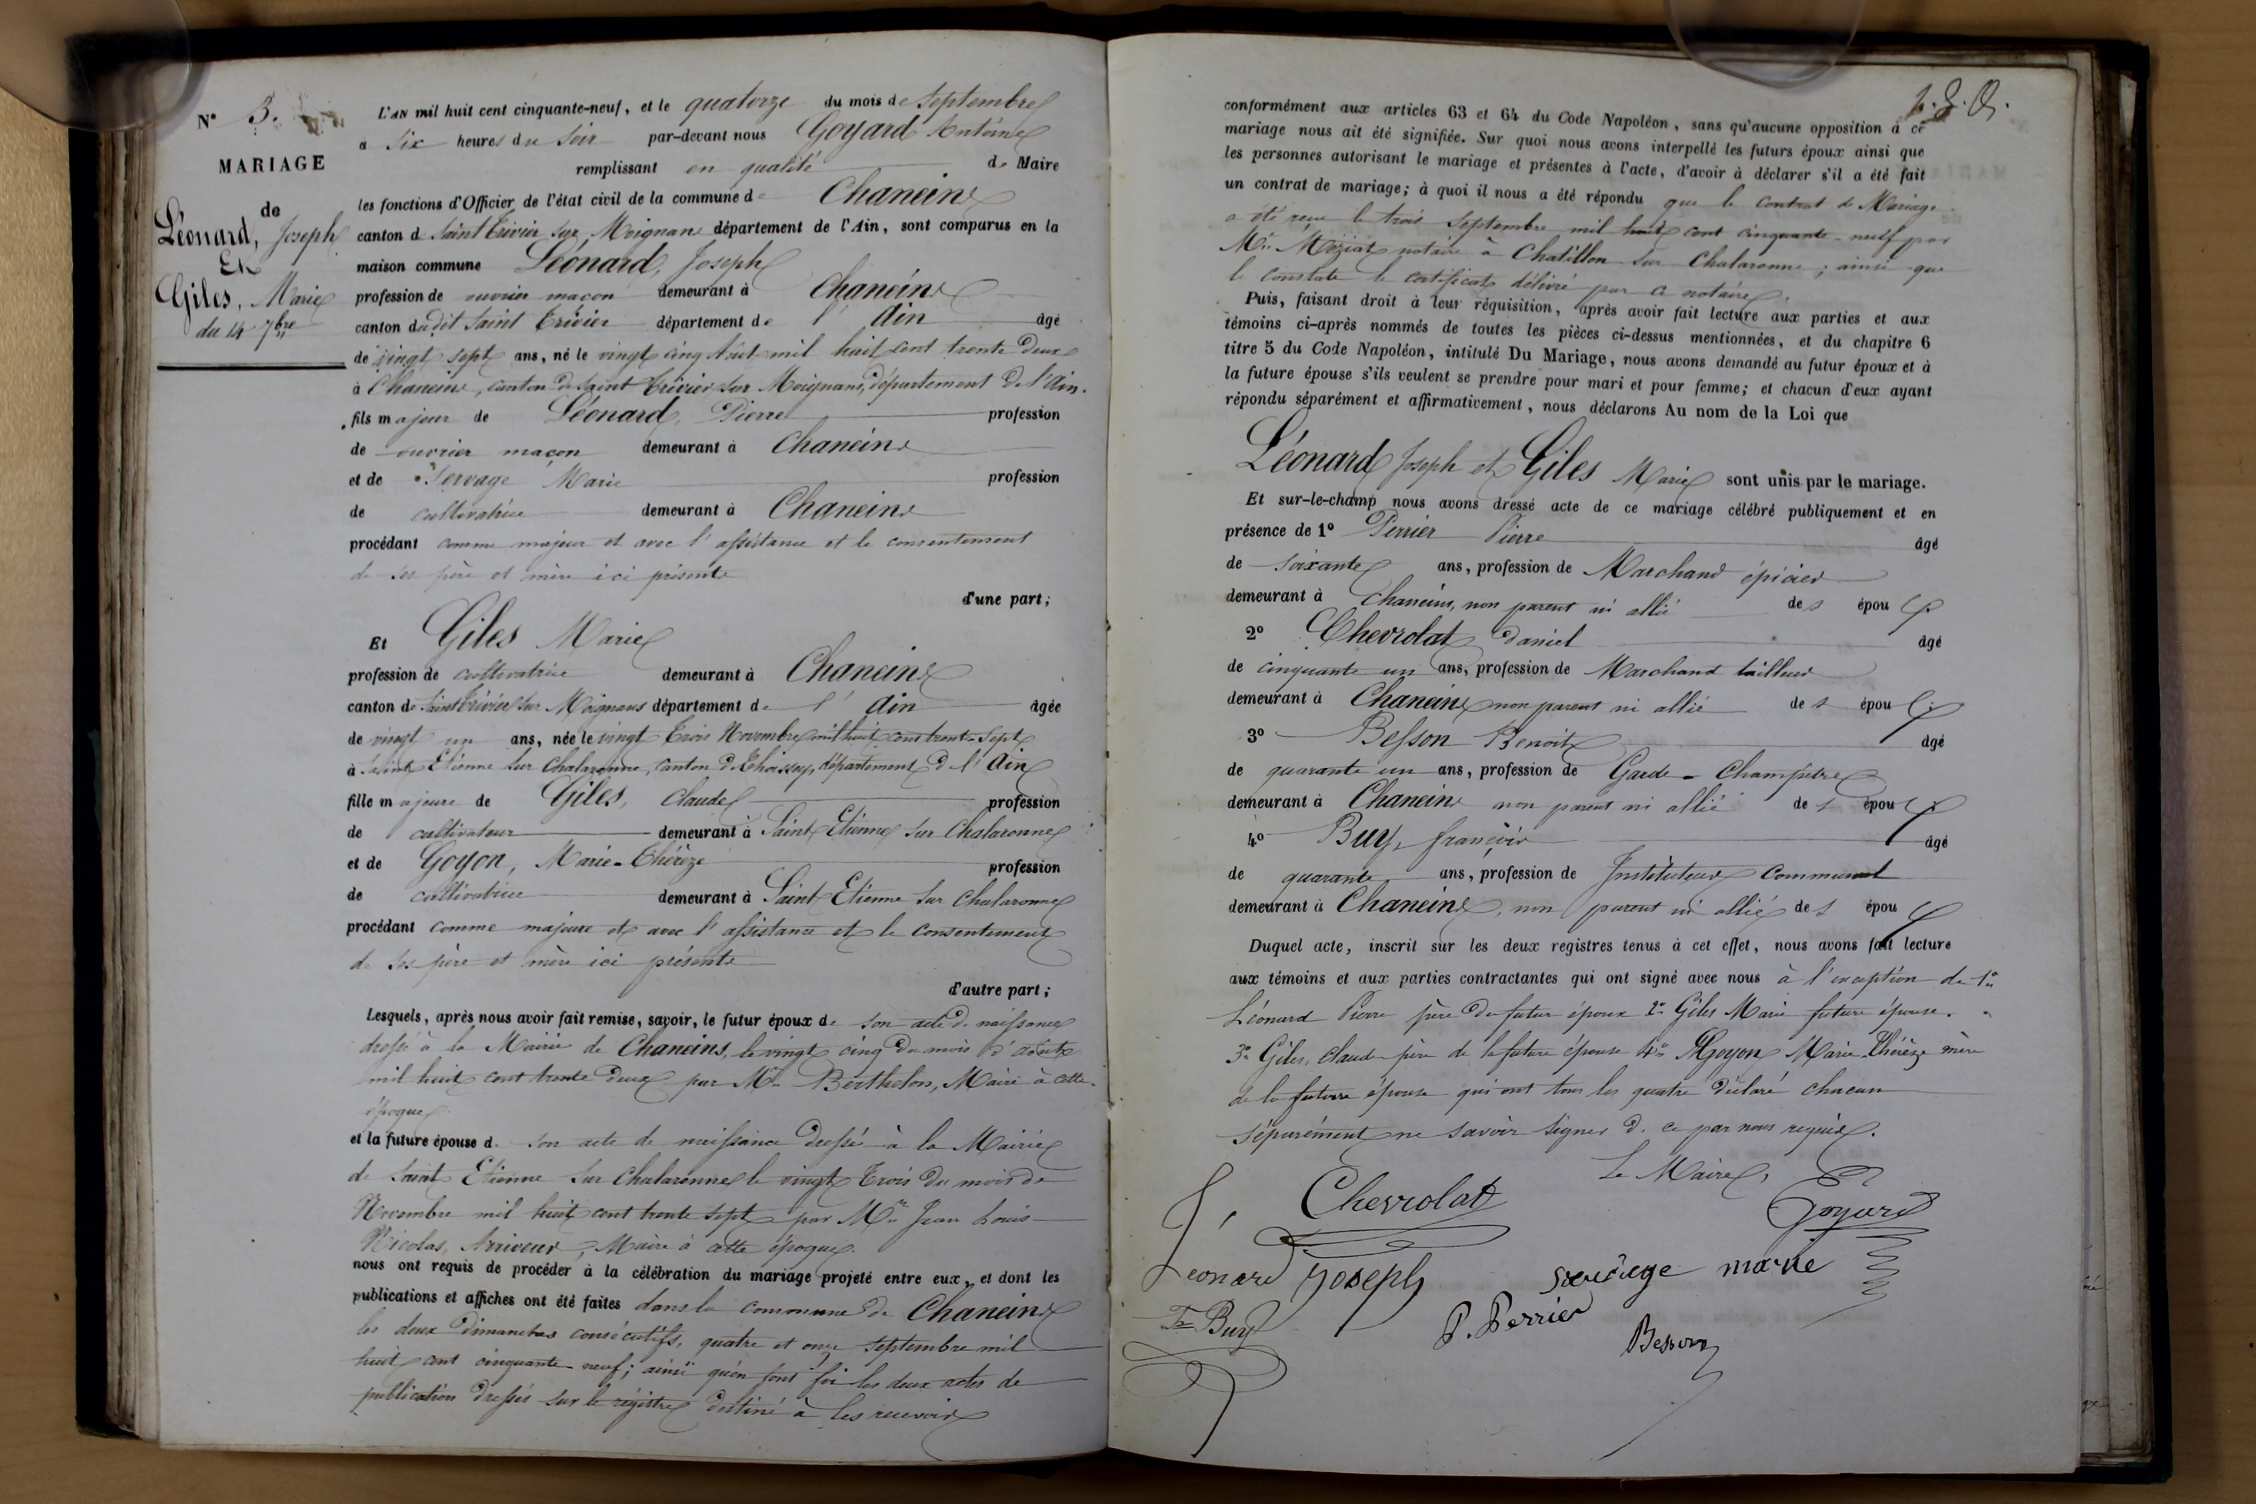 N° 3.
MARIAGE
de
Léonard, Joseph
Et
Giles, Marie
du 14 7bre
L'AN mil huit cent cinquante-neuf, et le quatorze du mois de Septembre
à six heures du soir par-devant nous Goyard Antoine
remplissant en qualité de Maire
les fonctions d'Officier de l'état civil de la commune de Chaneins
canton de Saint Trivier sur Moignans département de l'Ain, sont comparus en la
maison commune Léonard, Joseph
profession de ouvrier maçon demeurant à Chaneins
canton du dit Saint Trivier département de l'Ain âgé
de vingt sept ans, né le vingt cinq Août mil huit cent trente deux
à Chaneins, canton de Saint Trivier sur Moignans, département de l'Ain.
fils majeur de Léonard, Pierre profession
de ouvrier maçon demeurant à Chaneins
et de Servage Marie profession
de cultivatrice demeurant à Chaneins
procédant comme majeur et avec l'assistance et le consentement
de ses père et mère ici présents
d'une part;
Et Giles Marie
profession de cultivatrice demeurant à Chaneins
canton de Saint Trivier sur Moignans département de l'Ain âgée
de vingt un ans, née le vingt Trois Novembre mil huit cent trente-sept
à Saint Etienne sur Chalaronne, canton de Thoissey, département de l'Ain
fille majeure de Giles, Claude profession
de cultivateur demeurant à Saint Etienne sur Chalaronne
et de Goyon, Marie-Thérèze profession
de cultivatrice demeurant à Saint Etienne sur Chalaronne
procédant comme majeure et avec l'assistance et le consentement
de ses père et mère ici présents
d'autre part;
Lesquels, après nous avoir fait remise, savoir, le futur époux de son acte de naissance
dressé à la Mairie de Chaneins, le vingt cinq du mois d'août
mil huit cent trente deux par Mr. Berthelon, Maire à cette
époque
et la future épouse d. son acte de naissance dressé à la Mairie
de Saint Etienne sur Chalaronne le vingt Trois du mois de
Novembre mil huit cent trente sept par Mr. Jean Louis
Nicolas, Arriveur, Maire à cette époque.
nous ont requis de procéder à la célébration du mariage projeté entre eux, et dont les
publications et affiches ont été faites dans la commune de Chaneins
les deux Dimanches consécutifs, quatre et onze septembre mil
huit cent cinquante-neuf; ainsi qu'en font foi les deux actes de
publication dressés sur le régistre destiné à les recevoir
conformément aux articles 63 et 64 du Code Napoléon, sans qu'aucune opposition à ce
mariage nous ait été signifiée. Sur quoi nous avons interpellé les futurs époux ainsi que
les personnes autorisant le mariage et présentes à l'acte, d'avoir à déclarer s'il a été fait
un contrat de mariage; à quoi il nous a été répondu que le Contrat de Mariage
a été reçu le trois Septembre mil huit cent cinquante-neuf par
Me. Méziat notaire à Chatillon sur Chalaronne; ainsi que
le constate le certificat délivré par ce notaire.
Puis, faisant droit à leur réquisition, après avoir fait lecture aux parties et aux
témoins ci-après nommés de toutes les pièces ci-dessus mentionnées, et du chapitre 6
titre 5 du Code Napoléon, intitulé Du Mariage, nous avons demandé au futur époux et à
la future épouse s'ils veulent se prendre pour mari et pour femme; et chacun d'eux ayant
répondu séparément et affirmativement, nous déclarons Au nom de la Loi que
Léonard Joseph et Giles Marie sont unis par le mariage.
Et sur-le-champ nous avons dressé acte de ce mariage célébré publiquement et en
présence de 1° Perrier Pierre âgé
de soixante ans, profession de Marchand épicier
demeurant à Chaneins, non parent ni allié des époux
2° Chevrolat Daniel âgé
de cinquante un ans, profession de Marchand tailleur
demeurant à Chaneins non parent ni allié des époux
3° Besson Benoit âgé
de quarante un ans, profession de Garde-Champêtre
demeurant à Chaneins non parent ni allié des époux
4° Buy, françois âgé
de quarante ans, profession de Instituteur Communal
demeurant à Chaneins, non parent ni allié des époux
Duquel acte, inscrit sur les deux registres tenus à cet effet, nous avons fait lecture
aux témoins et aux parties contractantes qui ont signé avec nous à l'exception de 1°
Léonard Pierre père du futur époux 2° Giles Marie future épouse.
3° Giles, Claude père de la future épouse 4° Goyon Marie-Thérèze mère
de la future épouse qui ont tous les quatre déclaré chacun
séparément ne savoir signer d. ce par nous requis.
Le Maire,
Chevrolat
Goyard
Léonard Joseph
servage marie
Fs Buy
P. Perrier
Besson